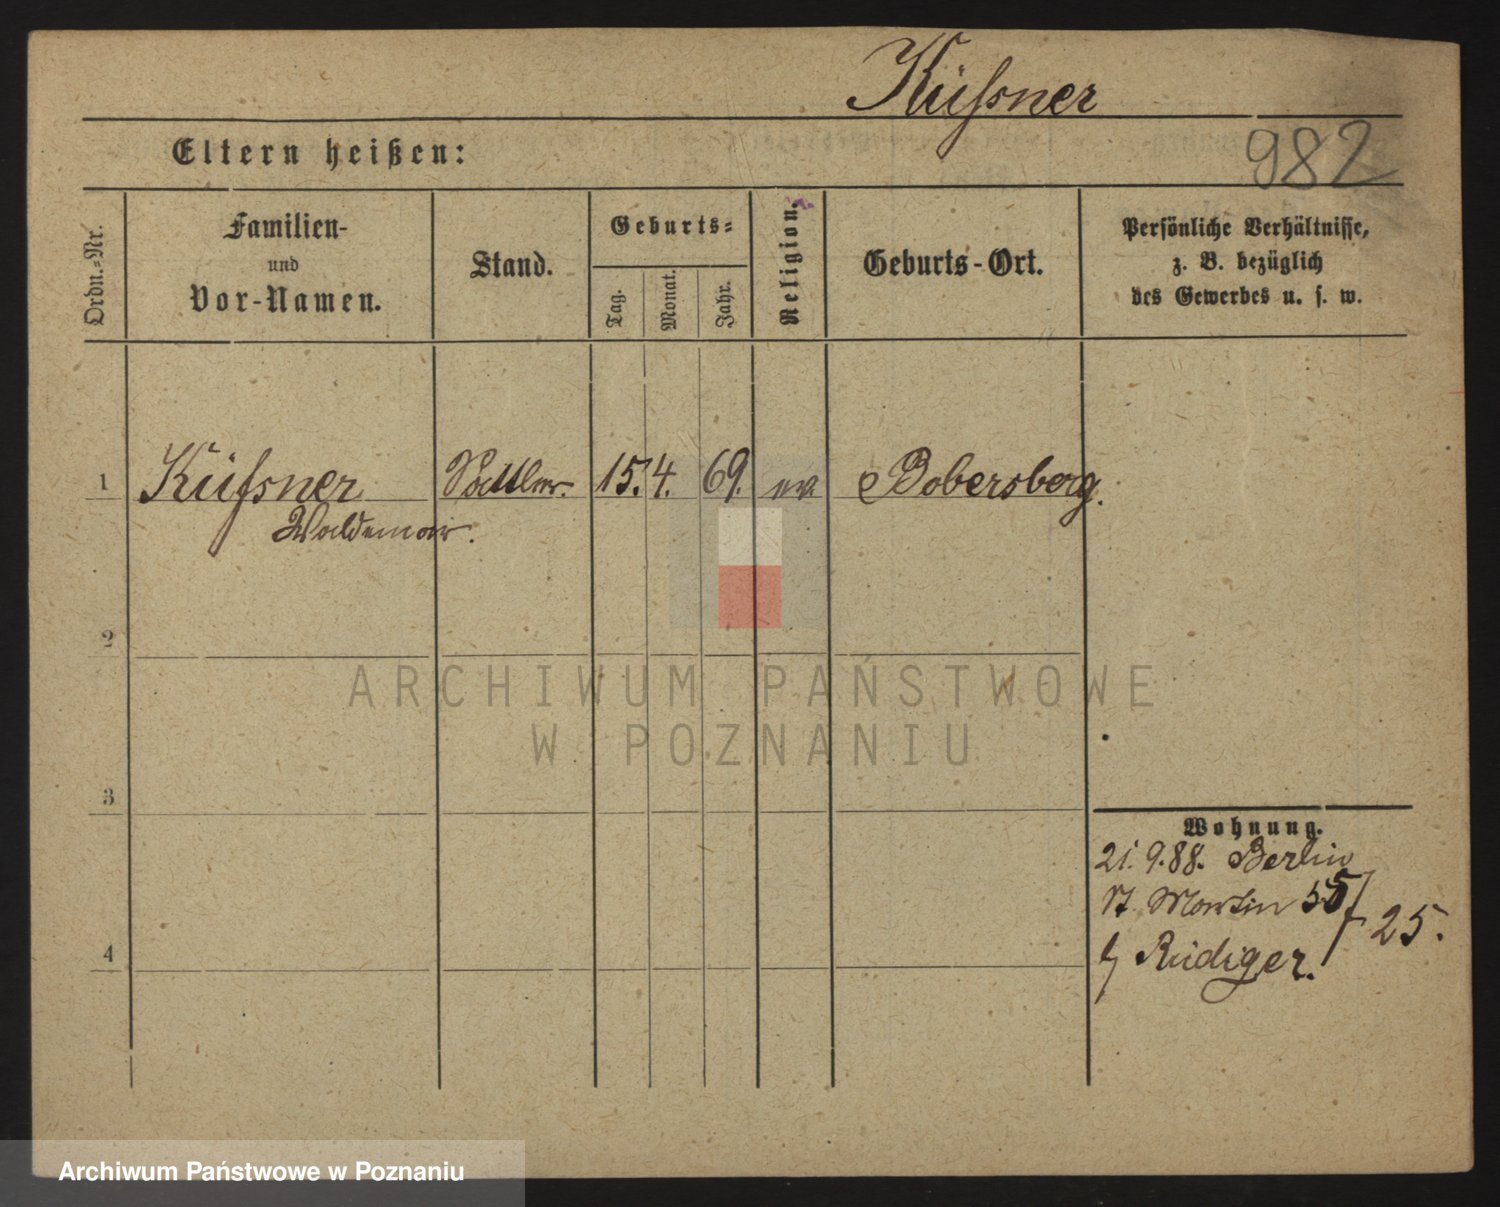 Küssner
982
Eltern heißen:
Ordn.-Nr.
Familien-
und
Vor-Namen.
Stand.
Geburts-
Tag.
Monat.
Jahr.
Religion.
Geburts-Ort.
Persönliche Verhältnisse,
z. B. bezüglich
des Gewerbes u. s. w.
1 Küssner Sattler. 15. 4. 69. ev Bobersberg.
Waldemar.
2
3
4
ARCHIWUM PAŃSTWOWE
W POZNANIU
Wohnung.
21. 9. 88. Berlin
St Martin 55
b/ Rüdiger. 25.
Archiwum Państwowe w Poznaniu